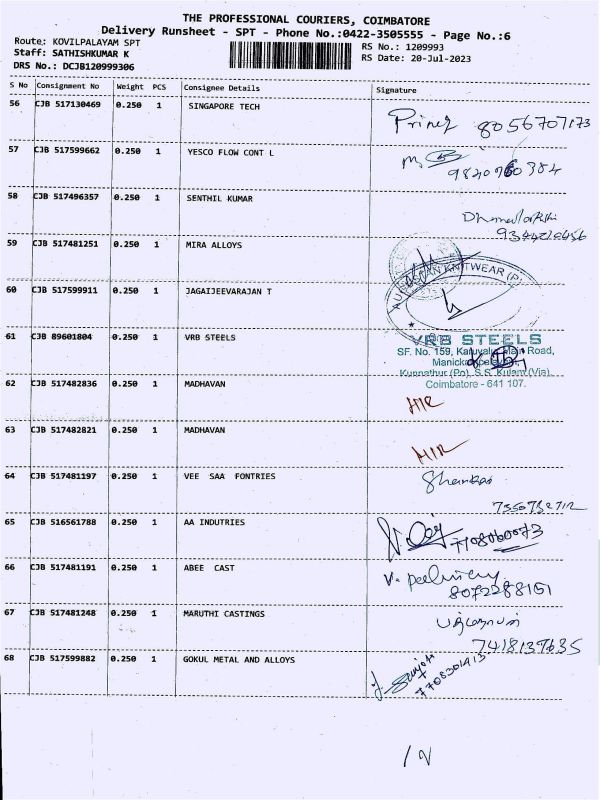 THE PROFESSIONAL COURIERS, COIMBATORE
Delivery Runsheet - SPT - Phone No.:0422-3505555 - Page No.:6
Route: KOVILPALAYAM SPT
RS No.: 1209993
Staff: SATHISHKUMAR K
RS Date: 20-Jul-2023
DRS No.: DCJB120999306
S No Consignment No Weight PCS Consignee Details Signature
56 CJB 517130469 0.250 1 SINGAPORE TECH 8056707173
57 CJB 517599662 0.250 1 YESCO FLOW CONT L
58 CJB 517496357 0.250 1 SENTHIL KUMAR
59 CJB 517481251 0.250 1 MIRA ALLOYS
KNITWEAR (P)
60 CJB 517599911 0.250 1 JAGAIJEEVARAJAN T
61 CJB 89601804 0.250 1 VRB STEELS
VRB STEELS
SF. No. 159, Road,
Kunnathur (Po), S.S. Kulam (Via),
Coimbatore - 641 107.
62 CJB 517482836 0.250 1 MADHAVAN
63 CJB 517482821 0.250 1 MADHAVAN
64 CJB 517481197 0.250 1 VEE SAA FONTRIES
65 CJB 516561788 0.250 1 AA INDUTRIES
7708060073
66 CJB 517481191 0.250 1 ABEE CAST
8072288151
67 CJB 517481248 0.250 1 MARUTHI CASTINGS
7418139635
68 CJB 517599882 0.250 1 GOKUL METAL AND ALLOYS